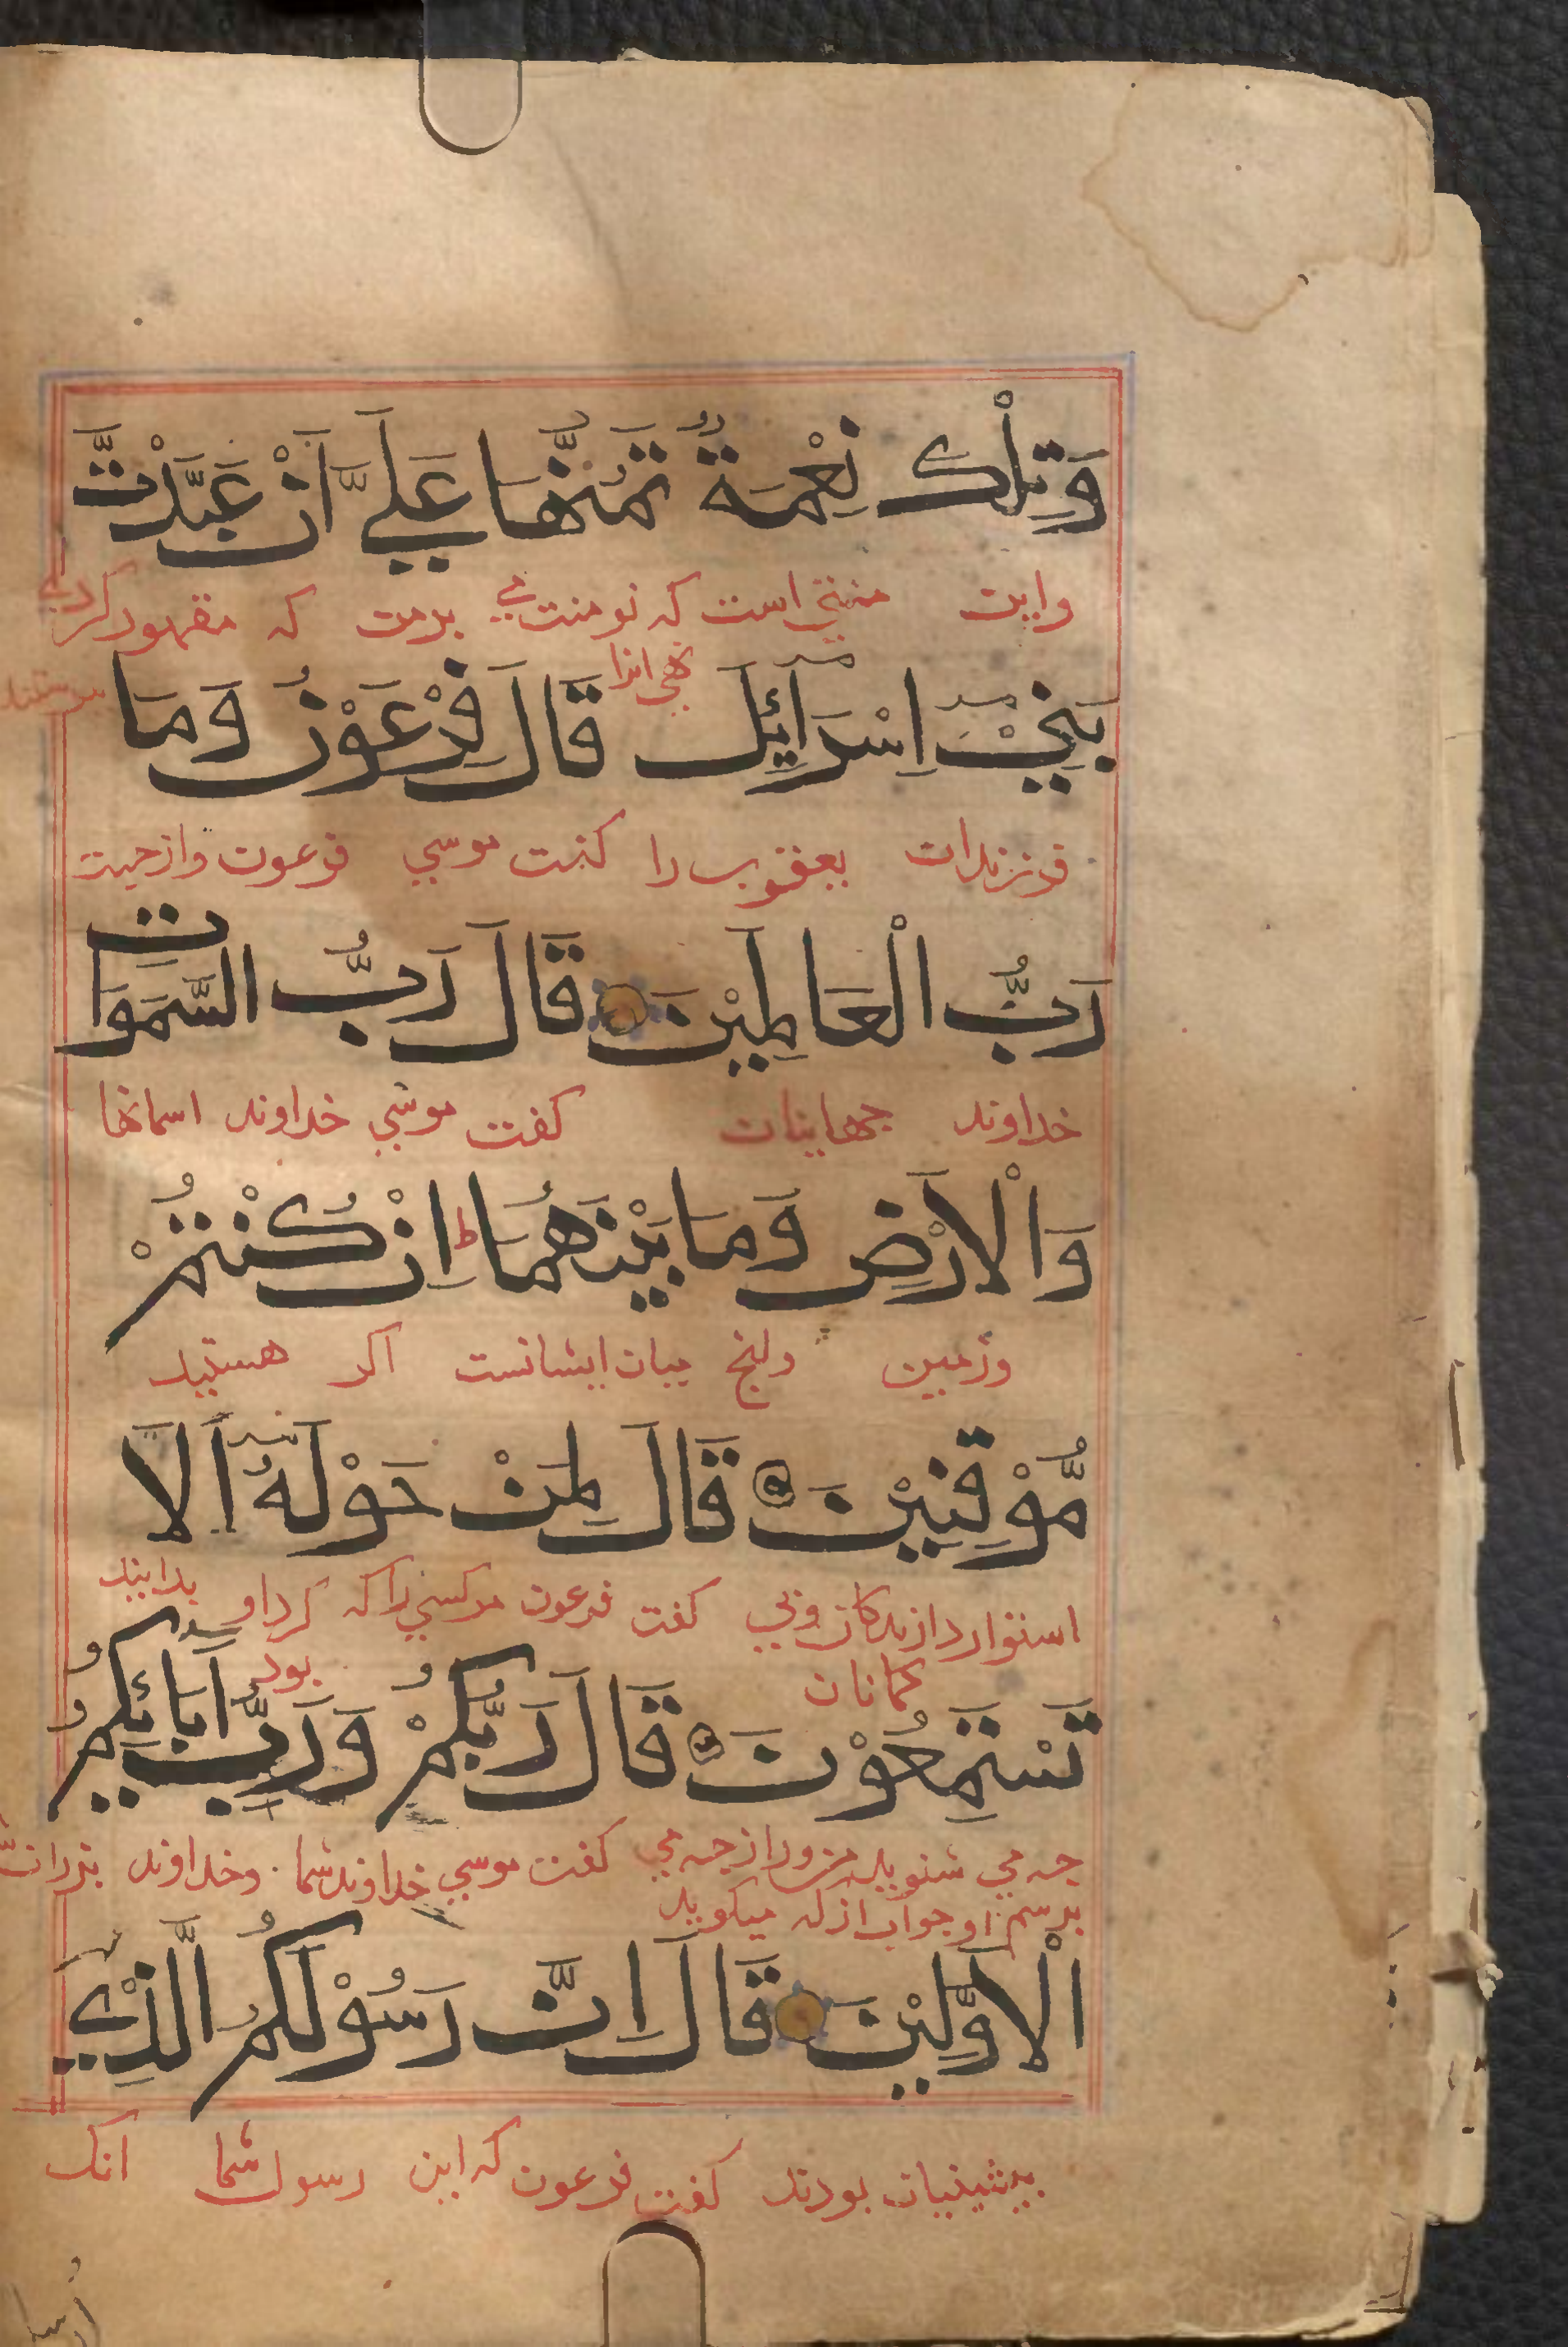 وَتِلْكَ نِعْمَةٌ تَمُنُّهَا عَلَيَّ اَنْ عَبَّدْتَّ
واین منتي است که تو منت مي برمن که مقهور کردي
بَنِيْٓ اِسْرَآئِيْلَ قَالَ فِرْعَوْنُ وَمَا
نهي انرا
فرزندان یعقوب را کفت موسي فرعون وازچیت
رَبُّ الْعَالَمِيْنَ قَالَ رَبُّ السَّمَوَاتِ
خداوند جهانیان کفت موسي خداوند اسمانها
وَالْاَرْضِ وَمَا بَيْنَهُمَا ط اِنْ كُنْتُمْ
وزمین وانچ میان ایشانست اکر هستید
مُّوْقِنِيْنَ قَالَ لِمَنْ حَوْلَهٗٓ اَلَا
استوار دازندکان وبي کفت فرعون مرکسي راکه کرد او بدانید
کمانان بود
تَسْتَمِعُوْنَ قَالَ رَبُّكُمْ وَرَبُّ اٰبَآئِكُمُ
چه مي شنوید من ورا از چه مي کفت موسي خداوند شما وخداوند پدران
برسم او جواب از که میکوید
الْاَوَّلِيْنَ قَالَ اِنَّ رَسُوْلَكُمُ الَّذِيْٓ
پیشینیان بودند کفت فرعون که این رسول شما انک